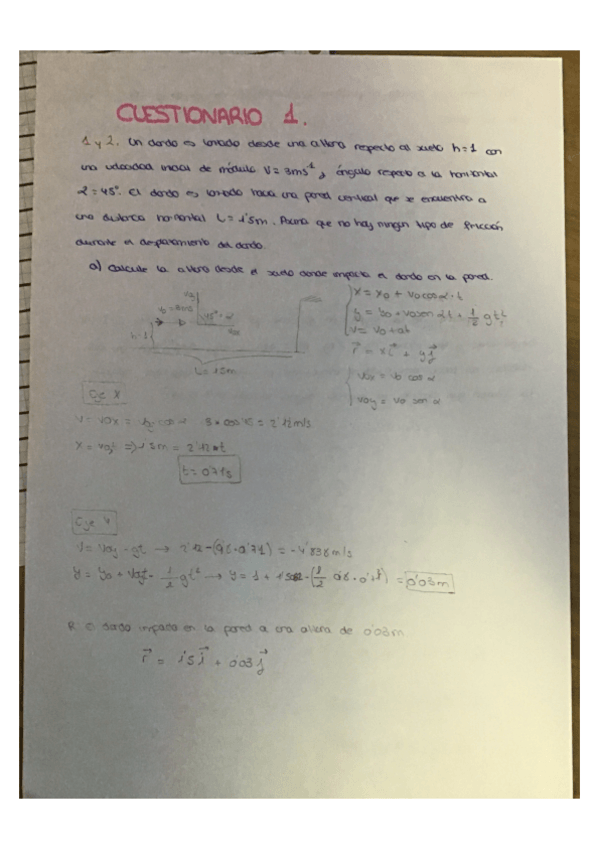 CUESTIONARIO 1.
1 y 2. Un dardo es lanzado desde una altura respecto al suelo h=1 con
una velocidad inicial de módulo V=3ms⁻¹, ángulo respecto a la horizontal
α=45°. El dardo es lanzado hacia una pared vertical que se encuentra a
una distancia horizontal L=1'5m. Asuma que no hay ningún tipo de fricción
durante el desplazamiento del dardo.
a) Calcule la altura desde el suelo donde impacta el dardo en la pared.
x = x0 + v0 cosα·t
y = y0 + v0 senαt + 1/2 gt²
v = v0 + at
r⃗ = xi⃗ + yj⃗
v0x = v0 cosα
v0y = v0 senα
h=1
L=1'5m
Eje X
V = V0x = v0·cosα 3×cos45 = 2'12m/s
t = 0'71s
Eje Y
V = V0y - gt → 2'12-(9'8·0'71) = -4'838m/s
y = y0 + V0yt - 1/2 gt² → y = 1 + = 0'03m
R El dardo impacta en la pared a una altura de 0'03m
r⃗ = 1'5i⃗ + 0'03j⃗